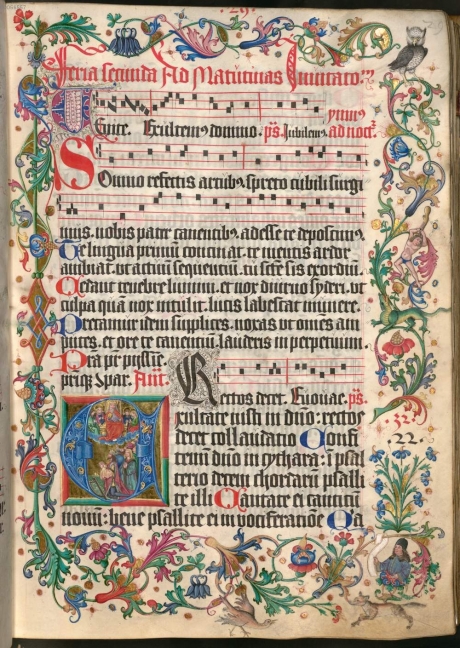 .29.
Feria secunda Ad Matutinas Invitato
ymnus
Enite. Exultemꝯ domino. ps. Jubilemꝯ ad noct.
Somno refectis artubꝯ. spreto cubili surgi
mus. nobis pater canentibꝯ. adesse te deposcimꝯ.
Te lingua primum concinat. te mentis ardor
ambiat. ut actuū sequentiū. tu scte sis exordiū.
Cedant tenebre lumini. et nox diurno syderi. ut
culpa quam nox intulit. lucis labescat munere.
Precamur idem supplices. noxas ut omēs am
putes. et ore te canentiū. lauderis in perpetuum.
Prā pr pyssie.
priqꝫ Spar. Ant.
Rectos decet. Euouae. ps.
Exultate iusti in dn̄o: rectos
decet collaudatio Confi
temini dn̄o in cythara: ī psal
terio decem chordarum psalli
te illi Cantate ei canticū
novum: bene psallite ei in vociferatiōe Qa
.32.
.22.